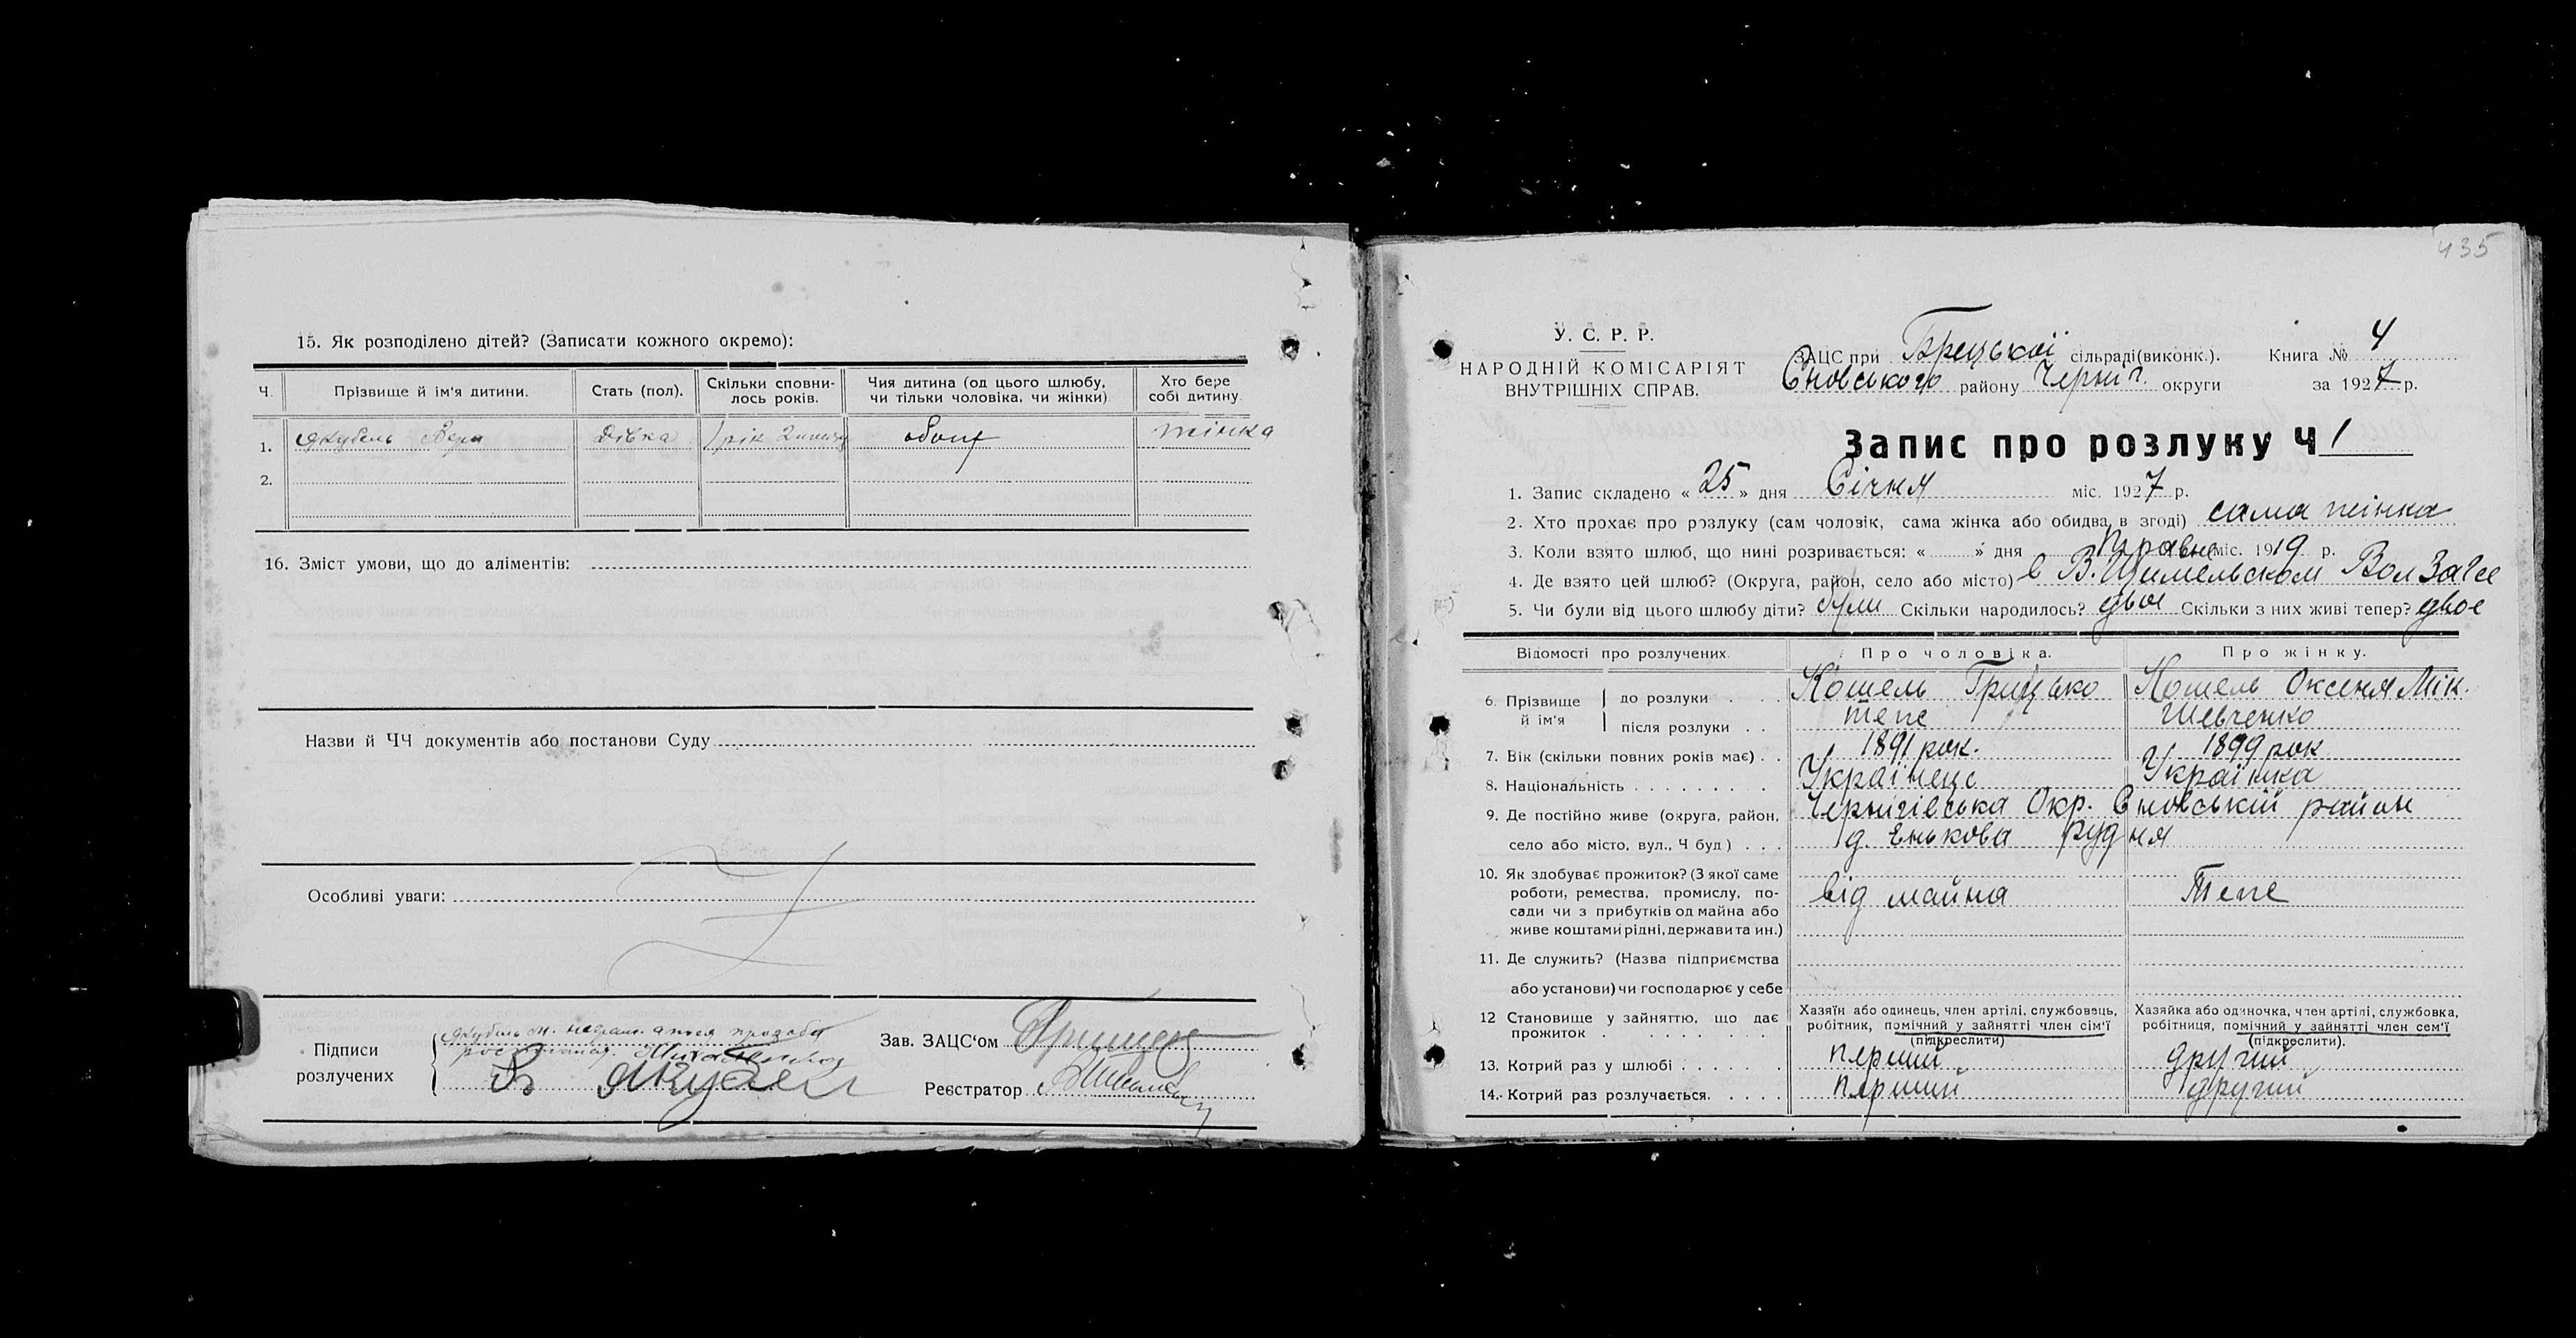 15. Як розподілено дітей? (Записати кожного окремо):
Ч. Прізвище й ім'я дитини. Стать (пол). Скільки сповни-лось років. Чия дитина (од цього шлюбу, чи тільки чоловіка, чи жінки) Хто бере собі дитину.
1. Якубель Вера Дівка 1 рік 2 обоих жінка
2.
16. Зміст умови, що до аліментів:
Назви й ЧЧ документів або постанови Суду
Особливі уваги:
Підписи розлучених
Якубель
Зав. ЗАЦС'ом
Реєстратор
435
У. С. Р. Р.
НАРОДНІЙ КОМІСАРІЯТ
ВНУТРІШНІХ СПРАВ.
ЗАЦС при Брецької сільраді(виконк.). Книга № 4
Сновського району Черніг. округи за 1927 р.
Запис про розлуку Ч 1
1. Запис складено « 25 » дня Січня міс. 1927 р.
2. Хто прохає про розлуку (сам чоловік, сама жінка або обидва в згоді) сама жінка
3. Коли взято шлюб, що нині розривається: « » дня міс. 1919 р.
4. Де взято цей шлюб? (Округа, район, село або місто) в В. Щимельском Вол Загсе
5. Чи були від цього шлюбу діти? були Скільки народилось? двое Скільки з них живі тепер? двое
Відомості про розлучених. Про чоловіка. Про жінку.
6. Прізвище й ім'я до розлуки . . . Кошель Грицько Кошель Оксеня Мік.
після розлуки . . теже Шевченко
7. Вік (скільки повних років має) . . 1891 рок. 1899 рок
8. Національність . . . . . . . . . Українець Українка
9. Де постійно живе (округа, район, Чернигівська Окр. Сновській район
село або місто, вул., Ч буд) . . . д. Енькова Рудня
10. Як здобуває прожиток? (З якої саме
роботи, ремества, промислу, по- від майна Теже
сади чи з прибутків од майна або
живе коштами рідні, держави та ин.)
11. Де служить? (Назва підприємства
або установи) чи господарює у себе
12 Становище у зайняттю, що дає прожиток . . . . . .
Хазяїн або одинець, член артілі, службовець, робітник, помічний у зайнятті член сім'ї (підкреслити)
Хазяйка або одиночка, член артілі, службовка, робітниця, помічний у зайнятті член сем'ї (підкреслити).
13. Котрий раз у шлюбі . . . . . . перший другий
14. Котрий раз розлучається. . . . . перший другий